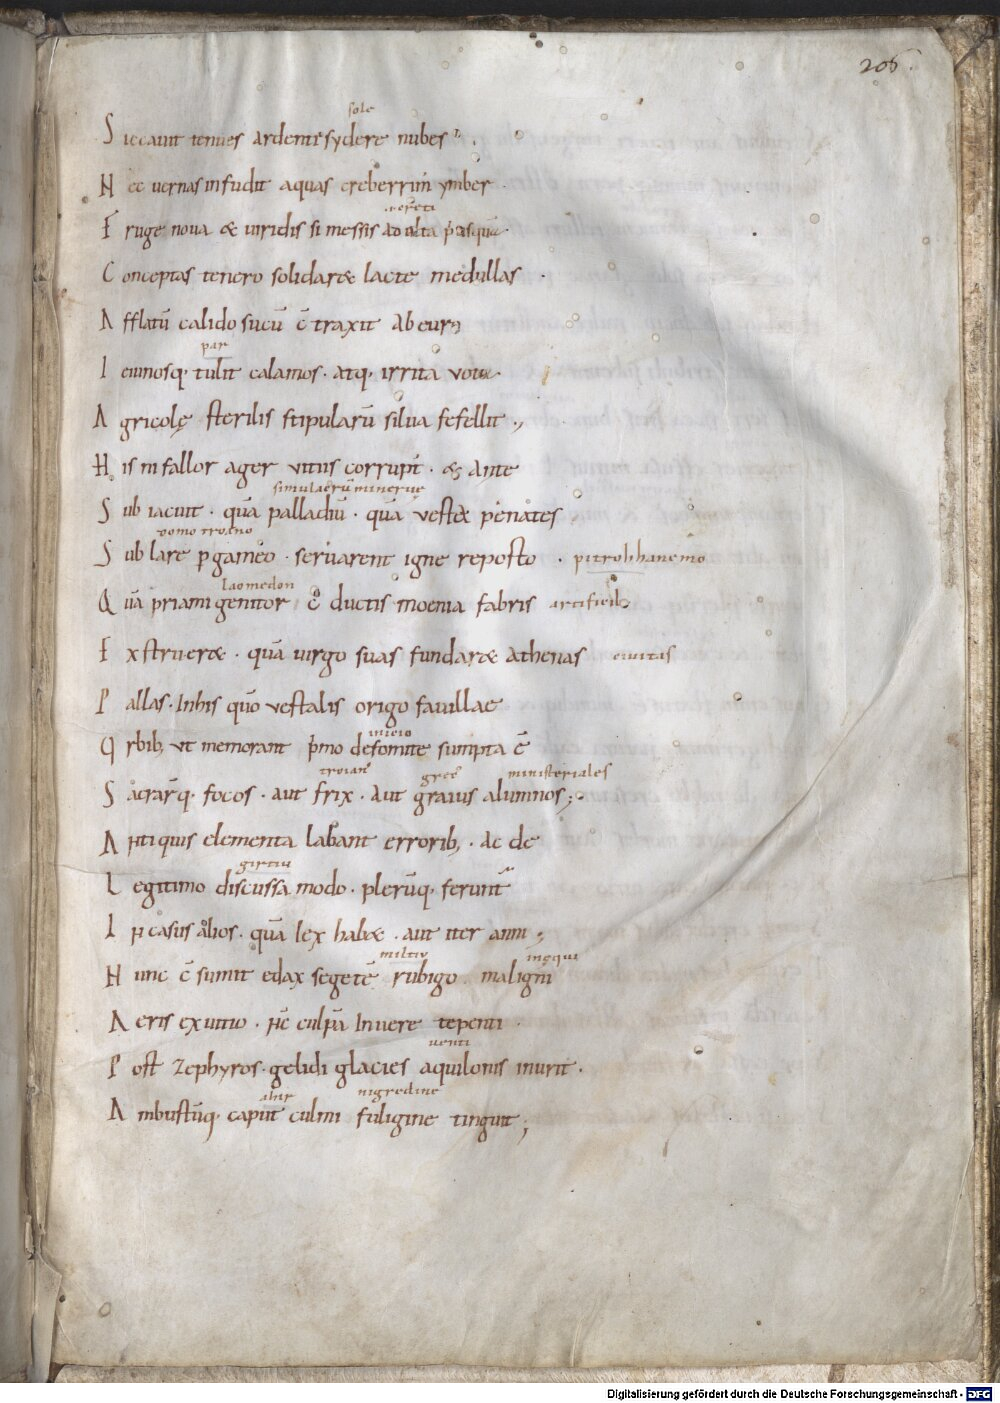 206.
sole
Siccauit tenues ardenti sydere nubes
Nec uernas infudit aquas creberrim ymber.
Fruge noua & uiridis si messis adulta p
Conceptas tenero solidar& lacte medullas .
Afflatū calido sucū c̄ traxit ab euro
par
Ieiunosq; tulit calamos. atq; irrita vota
Agricolę sterilis stipularū silua fefellit.,
His ni fallor ager vitiis corrupt̄. & ante
simulacrū minerue
Sub iacuit. quā palladiū. quā vest& penates
domo troiano
Sub lare pgameo. seruarent igne reposto .
laomedon
Quā priami genitor c̄ ductis moenia fabris artificib;
Exstruer&. quā uirgo suas fundar& athenas ciuitas
Pallas. In his quō vestalis origo fauillae
inicio
Qrbib; vt memorant pmo de fomite sumpta c̄
troian grec ministeriales
Sacrarq; focos. aut frix. aut graius alumnos;.
Antiquis elementa labant errorib;. ac de
Legitimo discussa modo. plerūq; ferunt
In casus alios. quā lex hab&. aut iter anni.,
iniqui
Nunc c̄ sumit edax segetē rubigo. maligni
Aeris ex uitio. nc̄ culpā In uere tepenti.
uenti
Post Zephyros. gelidi glacies aquilonis inurit.
nigredine
Ambustūq; caput culmi fuligine tinguit;
Digitalisierung gefördert durch die Deutsche Forschungsgemeinschaft - DFG